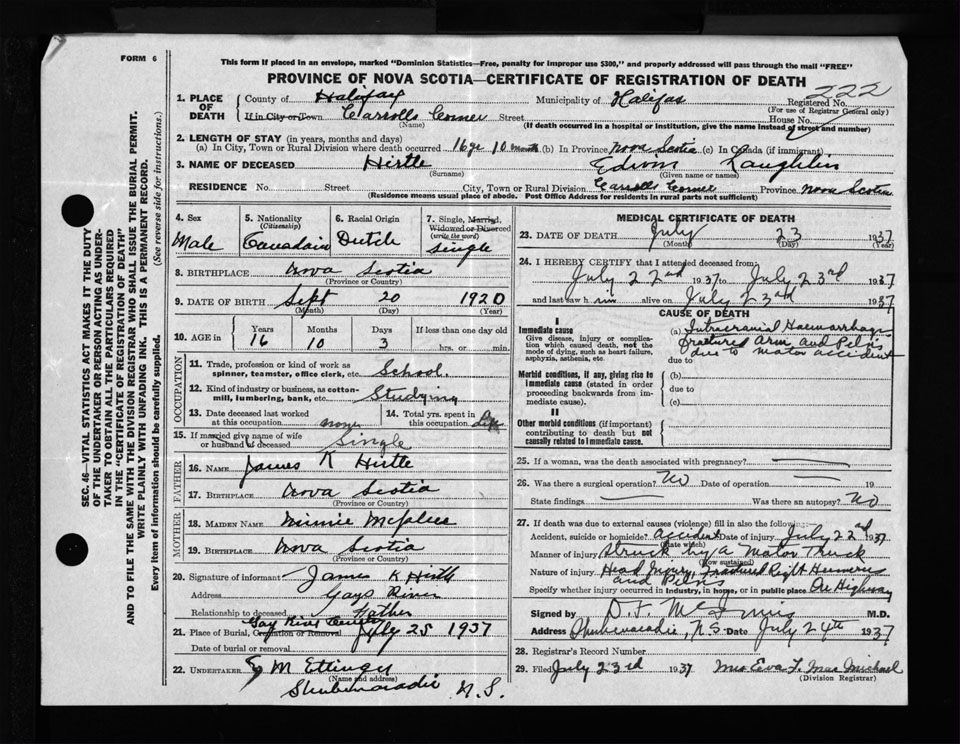 FORM 6
This form if placed in an envelope, marked "Dominion Statistics—Free, penalty for improper use $300," and properly addressed will pass through the mail "FREE"
PROVINCE OF NOVA SCOTIA—CERTIFICATE OF REGISTRATION OF DEATH
222
1. PLACE OF DEATH County of Halifax Municipality of Halifax Registered No.
(For use of Registrar General only)
If in City or Town Carrolls Corner Street House No.
(Name) (If death occurred in a hospital or institution, give the name instead of street and number)
2. LENGTH OF STAY (in years, months and days)
(a) In City, Town or Rural Division where death occurred 16 yr 10 month (b) In Province Nova Scotia (c) In Canada (if immigrant)
3. NAME OF DECEASED Hirtle Edwin Laughlin
(Surname) (Given name or names)
RESIDENCE No. Street City, Town or Rural Division Carrolls Corner Province Nova Scotia
(Residence means usual place of abode. Post Office Address for residents in rural parts not sufficient)
4. Sex Male
5. Nationality (Citizenship) Canadain
6. Racial Origin Dutch
7. Single, Married, Widowed or Divorced (write the word) Single
8. BIRTHPLACE Nova Scotia
(Province or Country)
9. DATE OF BIRTH Sept 20 1920
(Month) (Day) (Year)
10. AGE in Years Months Days If less than one day old
16 10 3 hrs. or min.
OCCUPATION
11. Trade, profession or kind of work as spinner, teamster, office clerk, etc. School.
12. Kind of industry or business, as cotton-mill, lumbering, bank, etc. Studying
13. Date deceased last worked at this occupation none
14. Total yrs. spent in this occupation
15. If married give name of wife or husband of deceased Single
FATHER
16. NAME James K Hirtle
17. BIRTHPLACE Nova Scotia
(Province or Country)
MOTHER
18. MAIDEN NAME Minnie
19. BIRTHPLACE Nova Scotia
(Province or Country)
20. Signature of informant James K Hirtle
Address Gays River
Relationship to deceased Father
21. Place of Burial, Cremation or Removal Gay River July 25 1937
Date of burial or removal
22. UNDERTAKER M Ettinger
(Name and address)
Shubenacadie N.S.
MEDICAL CERTIFICATE OF DEATH
23. DATE OF DEATH July 23 1937
(Month) (Day) (Year)
24. I HEREBY CERTIFY that I attended deceased from:
July 22nd 1937 to July 23rd 1937
and last saw him alive on July 23rd 1937
CAUSE OF DEATH
I
Immediate cause
Give disease, injury or complication which caused death, not the mode of dying, such as heart failure, asphyxia, asthenia, etc.
(a) Intracranial Haemorrhage
fractured Arm and Pelvis
due to due to motor accident
Morbid conditions, if any, giving rise to immediate cause (stated in order proceeding backwards from immediate cause).
(b)
due to
(c)
II
Other morbid conditions (if important) contributing to death but not causally related to immediate cause.
25. If a woman, was the death associated with pregnancy?
26. Was there a surgical operation? No Date of operation 19
State findings Was there an autopsy? No
27. If death was due to external causes (violence) fill in also the following:
Accident, suicide or homicide? accident Date of injury July 22nd 1937
(State which)
Manner of injury Struck by a Motor Truck
(How sustained)
Nature of injury Head Injury, Fractured Right Humerus
and Pelvis
Specify whether injury occurred in industry, in home, or in public place On Highway
Signed by M.D.
Address Shubenacadie, N.S. Date July 24th 1937
28. Registrar's Record Number
29. Filed July 23rd 1937 Mrs Eva F. Mac Michael
(Division Registrar)
SEC. 46—VITAL STATISTICS ACT MAKES IT THE DUTY
OF THE UNDERTAKER OR PERSON ACTING AS UNDER-
TAKER TO OBTAIN ALL THE PARTICULARS REQUIRED
IN THE "CERTIFICATE OF REGISTRATION OF DEATH"
AND TO FILE THE SAME WITH THE DIVISION REGISTRAR WHO SHALL ISSUE THE BURIAL PERMIT.
WRITE PLAINLY WITH UNFADING INK. THIS IS A PERMANENT RECORD.
Every item of information should be carefully supplied. (See reverse side for instructions.)